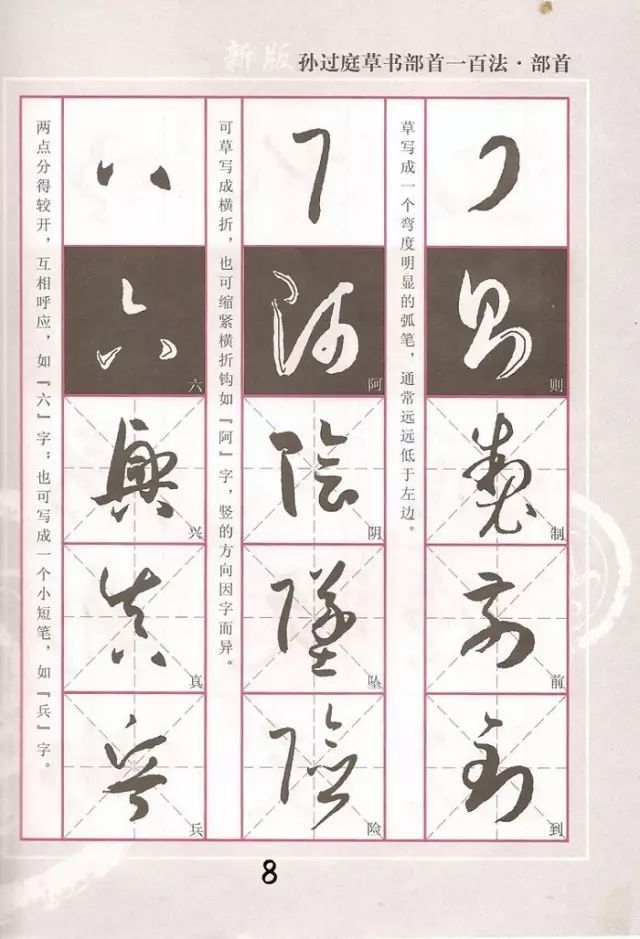 新版 孙过庭草书部首一百法·部首
草写成一个弯度明显的弧笔，通常远远低于左边。
则
制
前
到
可草写成横折，也可缩紧横折钩如『阿』字，竖的方向因字而异。
阿
阴
坠
险
两点分得较开，互相呼应，如『六』字；也可写成一个小短笔，如『兵』字。
六
兴
真
兵
8